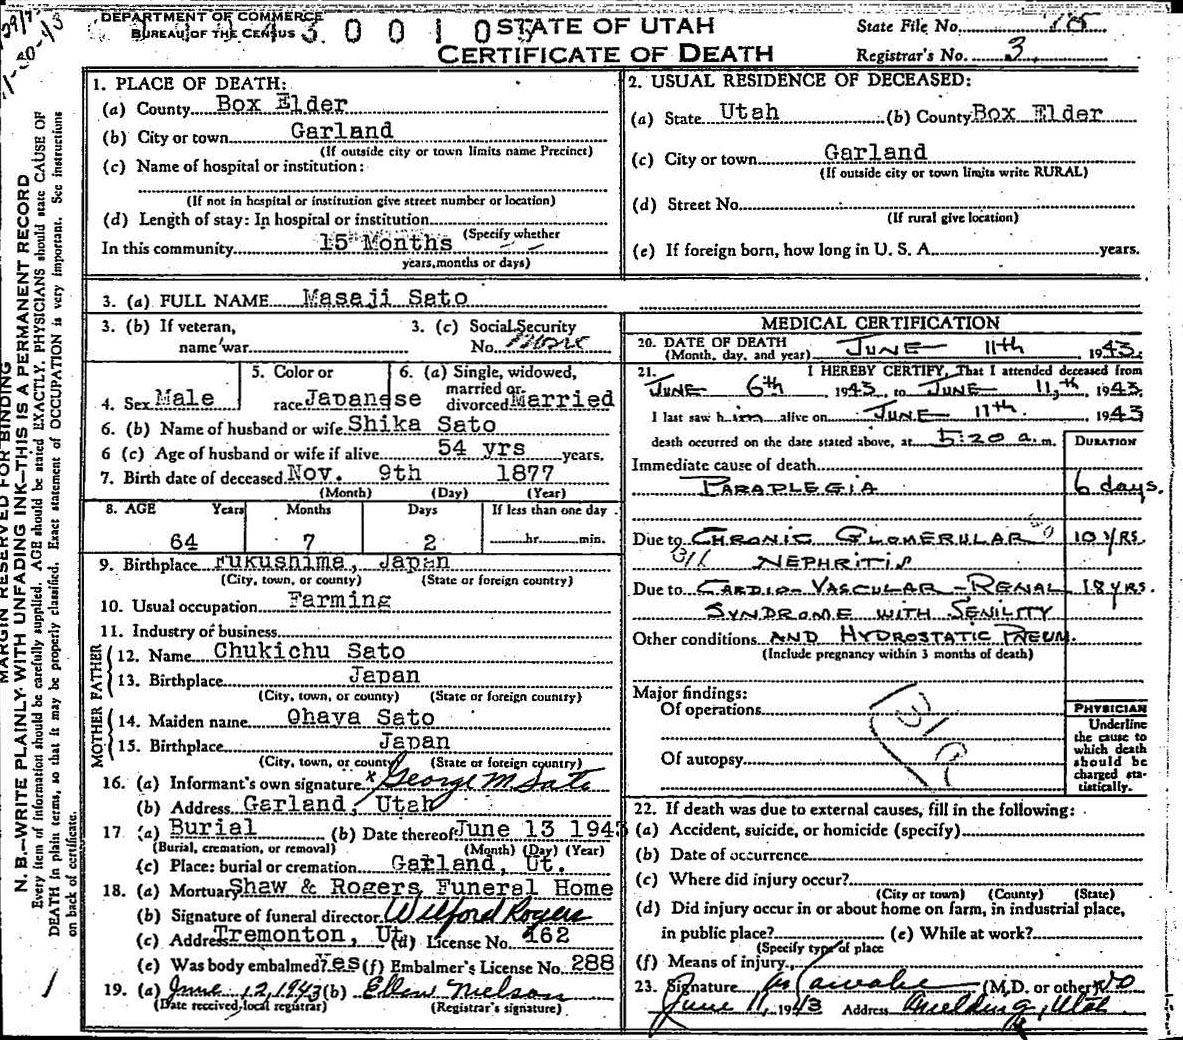 DEPARTMENT OF COMMERCE
BUREAU OF THE CENSUS
3 0 0 1 0
STATE OF UTAH
CERTIFICATE OF DEATH
State File No.
Registrar's No. 3
MARGIN RESERVED FOR BINDING
N. B.—WRITE PLAINLY WITH UNFADING INK—THIS IS A PERMANENT RECORD
Every item of information should be carefully supplied. AGE should be stated EXACTLY. PHYSICIANS should state CAUSE OF
DEATH in plain terms, so that it may be properly classified. Exact statement of OCCUPATION is very important. See instructions
on back of certificate.
1. PLACE OF DEATH:
(a) County Box Elder
(b) City or town Garland
(If outside city or town limits name Precinct)
(c) Name of hospital or institution:
(If not in hospital or institution give street number or location)
(d) Length of stay: In hospital or institution
(Specify whether
In this community 15 Months
years, months or days)
2. USUAL RESIDENCE OF DECEASED:
(a) State Utah (b) County Box Elder
(c) City or town Garland
(If outside city or town limits write RURAL)
(d) Street No.
(If rural give location)
(e) If foreign born, how long in U. S. A. years.
3. (a) FULL NAME Masaji Sato
3. (b) If veteran,
name war
3. (c) Social Security
No. None
4. Sex Male
5. Color or
race Japanese
6. (a) Single, widowed,
married or
divorced Married
6. (b) Name of husband or wife Shika Sato
6 (c) Age of husband or wife if alive 54 yrs years.
7. Birth date of deceased Nov. 9th 1877
(Month) (Day) (Year)
8. AGE Years Months Days If less than one day
64 7 2 hr. min.
9. Birthplace Fukushima, Japan
(City, town, or county) (State or foreign country)
10. Usual occupation Farming
11. Industry or business
FATHER
12. Name Chukichu Sato
13. Birthplace Japan
(City, town, or county) (State or foreign country)
MOTHER
14. Maiden name Ohaya Sato
15. Birthplace Japan
(City, town, or county) (State or foreign country)
16. (a) Informant's own signature x George M Sato
(b) Address Garland, Utah
17 (a) Burial (b) Date thereof June 13 1943
(Burial, cremation, or removal) (Month) (Day) (Year)
(c) Place: burial or cremation Garland, Ut.
18. (a) Mortuary Shaw & Rogers Funeral Home
(b) Signature of funeral director Wilford Rogers
(c) Address Tremonton, Ut. (d) License No. 162
(e) Was body embalmed? Yes (f) Embalmer's License No. 288
19. (a) June 12, 1943 (b) Ellen Nielson
(Date received local registrar) (Registrar's signature)
MEDICAL CERTIFICATION
20. DATE OF DEATH
(Month, day, and year) JUNE 11th, 1943.
21. I HEREBY CERTIFY, That I attended deceased from
JUNE 6th, 1943, to JUNE 11,th, 1943.
I last saw him alive on JUNE 11th. 1943
death occurred on the date stated above, at 5:20 a.m.
DURATION
Immediate cause of death
PARAPLEGIA 6 days.
Due to CHRONIC GLOMERULAR 10 YRS.
NEPHRITIS
Due to CARDIO-VASCULAR-RENAL 18 YRS.
SYNDROME WITH SENILITY
Other conditions AND HYDROSTATIC PNEUM.
(Include pregnancy within 3 months of death)
Major findings:
Of operations
Of autopsy
PHYSICIAN
Underline
the cause to
which death
should be
charged sta-
tistically.
22. If death was due to external causes, fill in the following:
(a) Accident, suicide, or homicide (specify)
(b) Date of occurrence
(c) Where did injury occur?
(City or town) (County) (State)
(d) Did injury occur in or about home on farm, in industrial place,
in public place? (e) While at work?
(Specify type of place
(f) Means of injury
23. Signature (M.D. or other)
June 11, 1943 Address Fielding, Utah